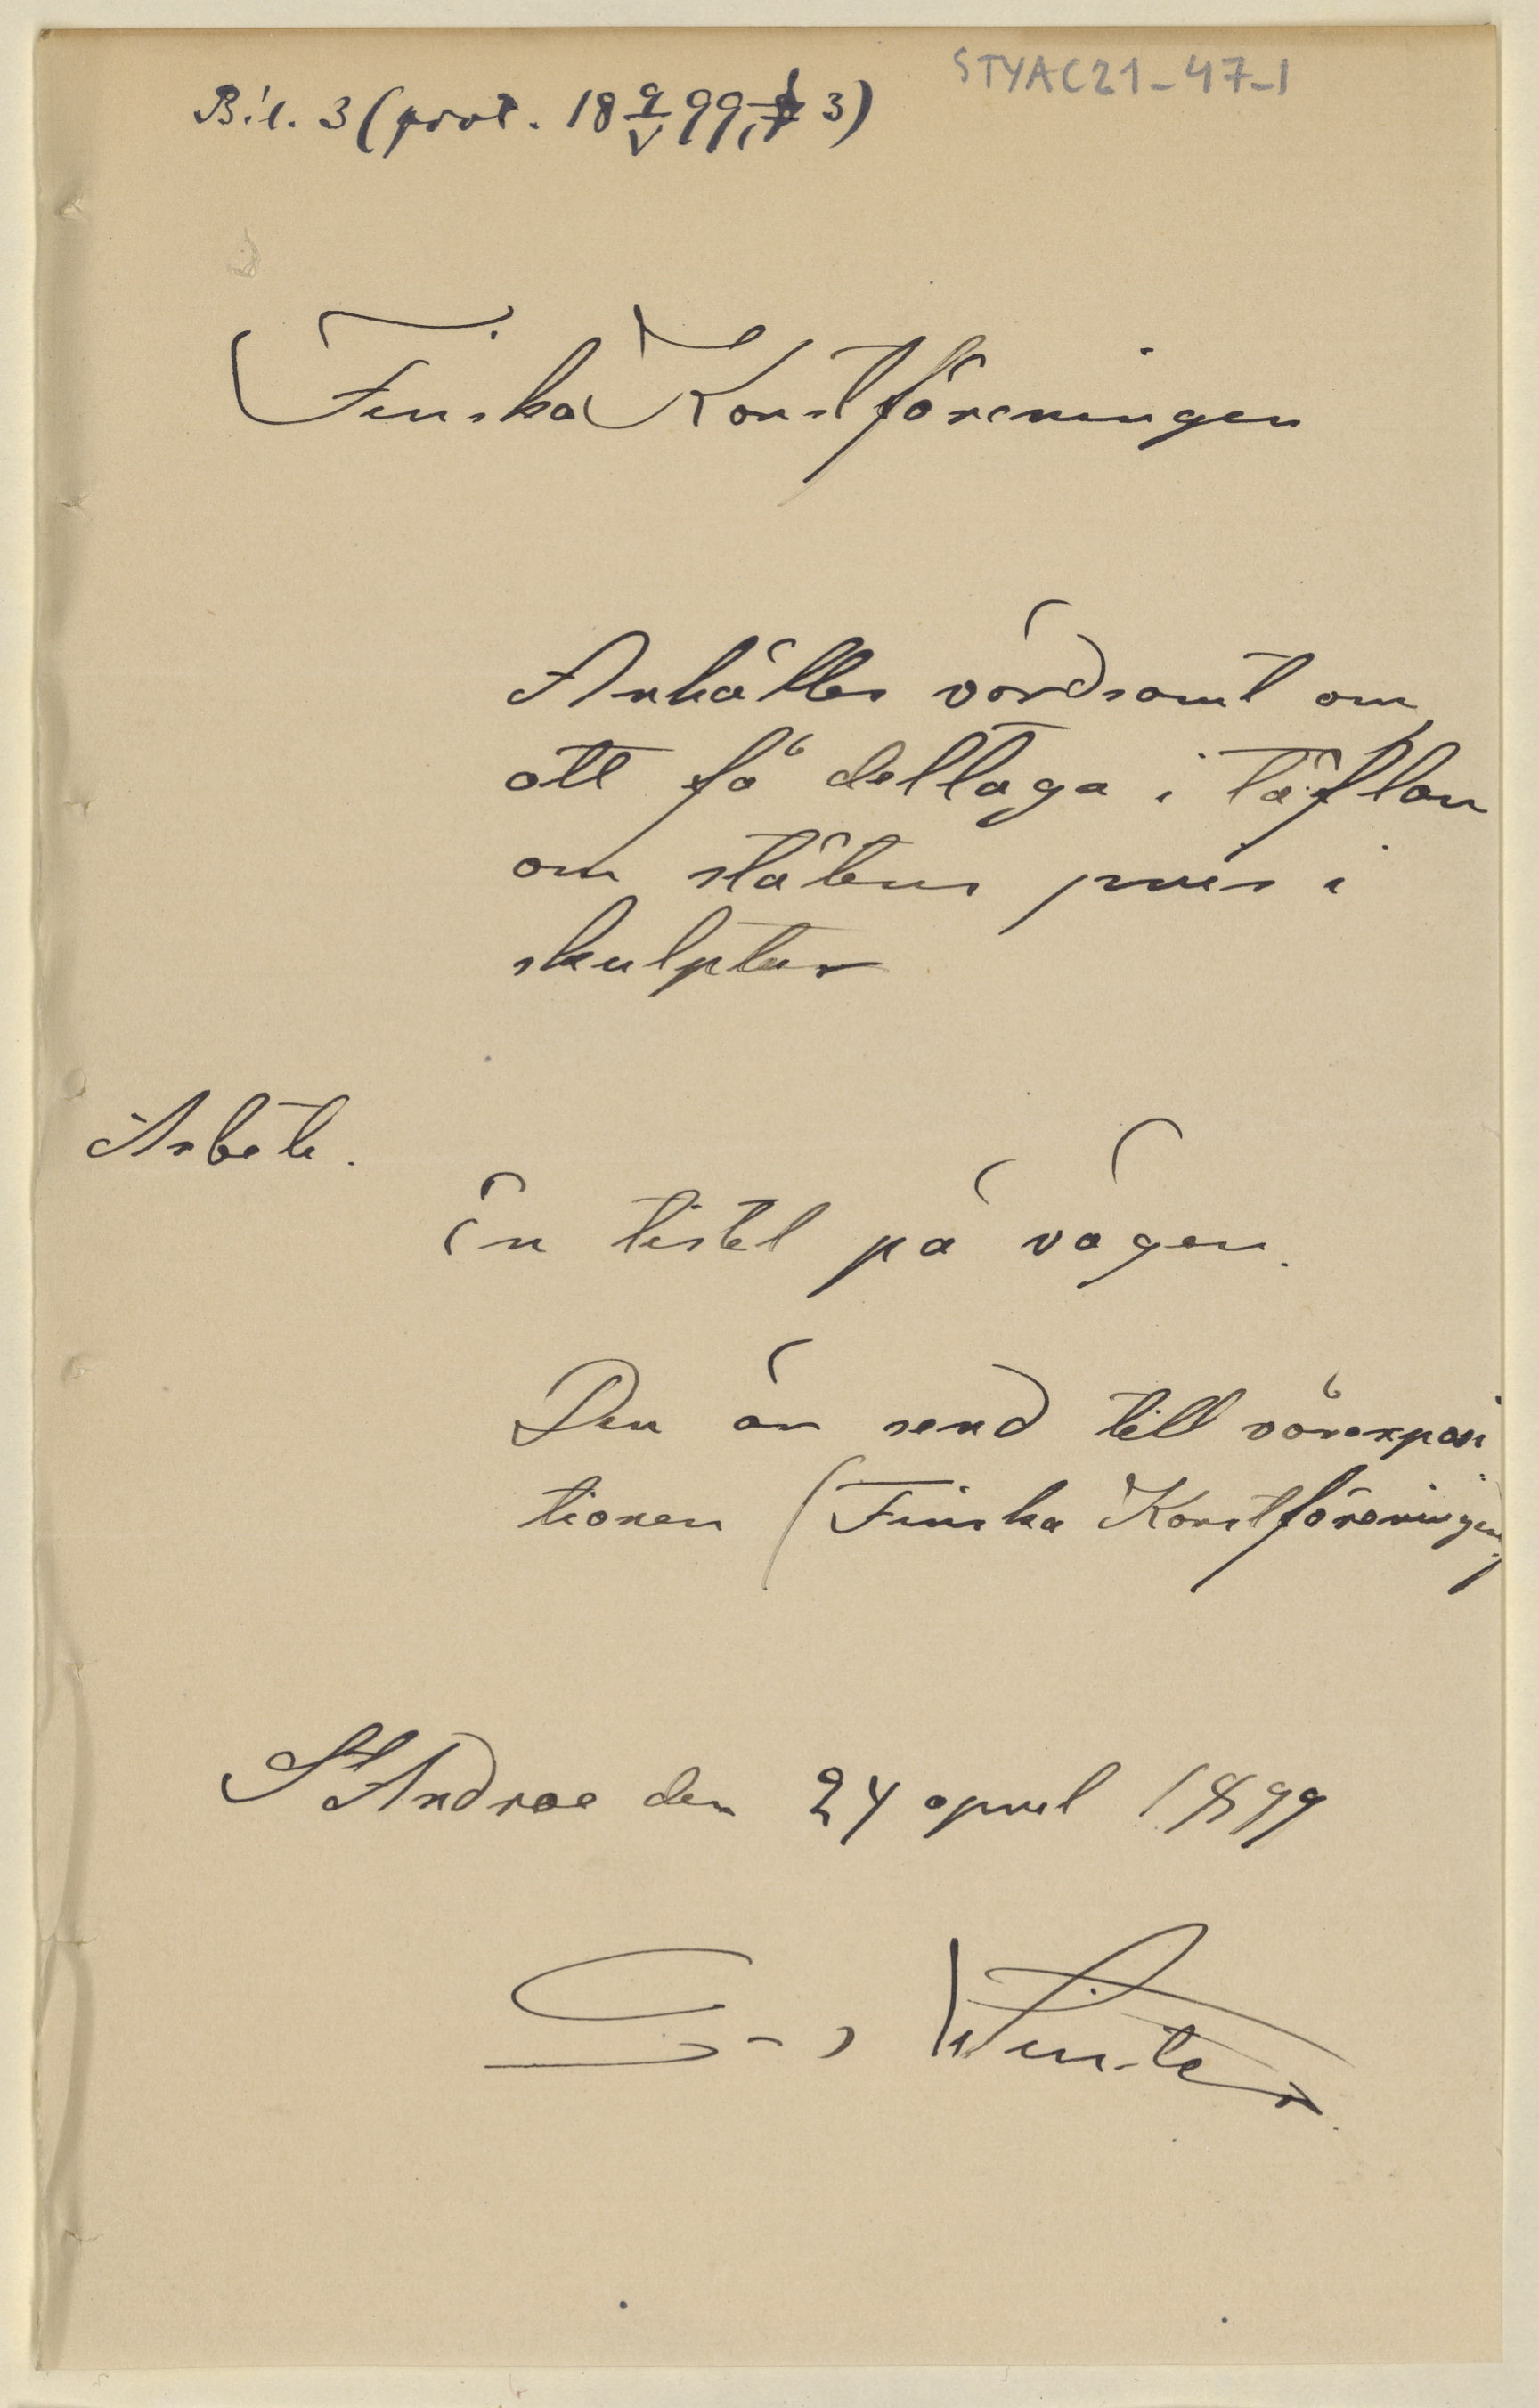 STYAC21-47-1
Bil. 3 (prot. 18 9/V 99, § 3)
Finska Konstföreningen
Anhålles vördsamt om
att få deltaga i täflan
om statens pris i
skulptur
Arbete.
En tistel på vägen.
Den är send till vårexposi
tionen (Finska Konstföreningen)
St Andrae den 24 april 1899
Winter